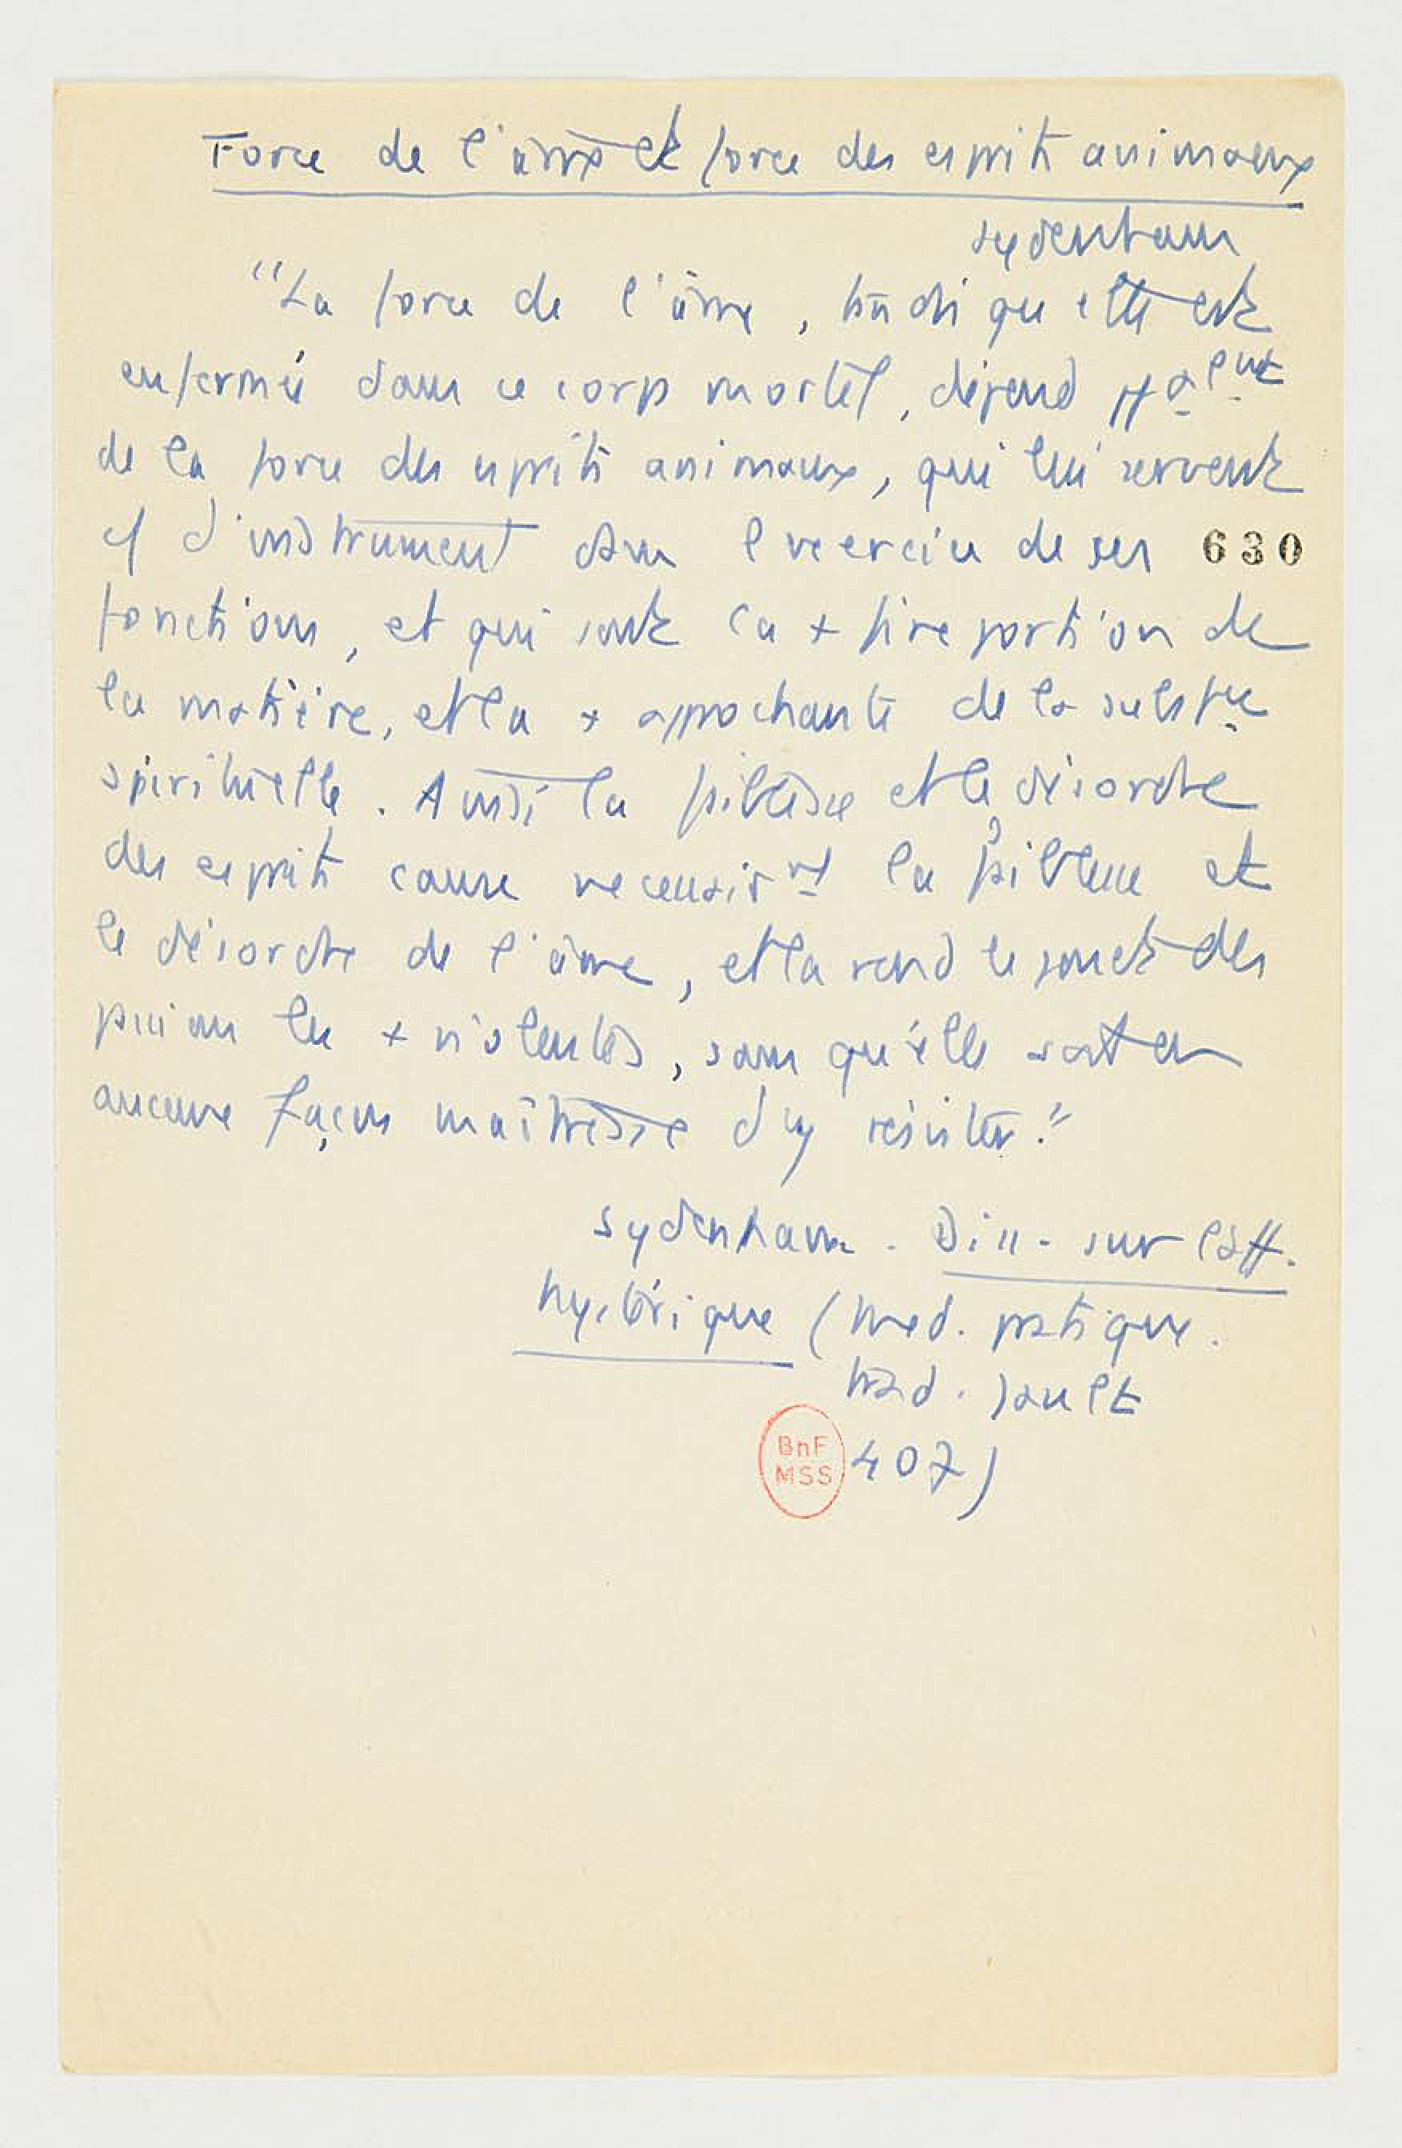 Force de l'âme et force des esprits animaux
Sydenham
"La force de l'âme, tandis qu'elle est
enfermée dans ce corps mortel, dépend
de la force des esprits animaux, qui lui servent
d'instrument dans l'exercice de ses 630
fonctions, et qui sont la + fine portion de
la matière, et la + approchante de la substce
spirituelle. Ainsi la faiblesse et le désordre
des esprits cause nécessairmt la faiblesse et
le désordre de l'âme, et la rend le jouet des
passions les + violentes, sans qu'elle soit en
aucune façon maîtresse d'y résister."
Sydenham. Diss. sur l'aff.
hystérique (Med. pratique.
trad. Jault
BnF MSS 407)